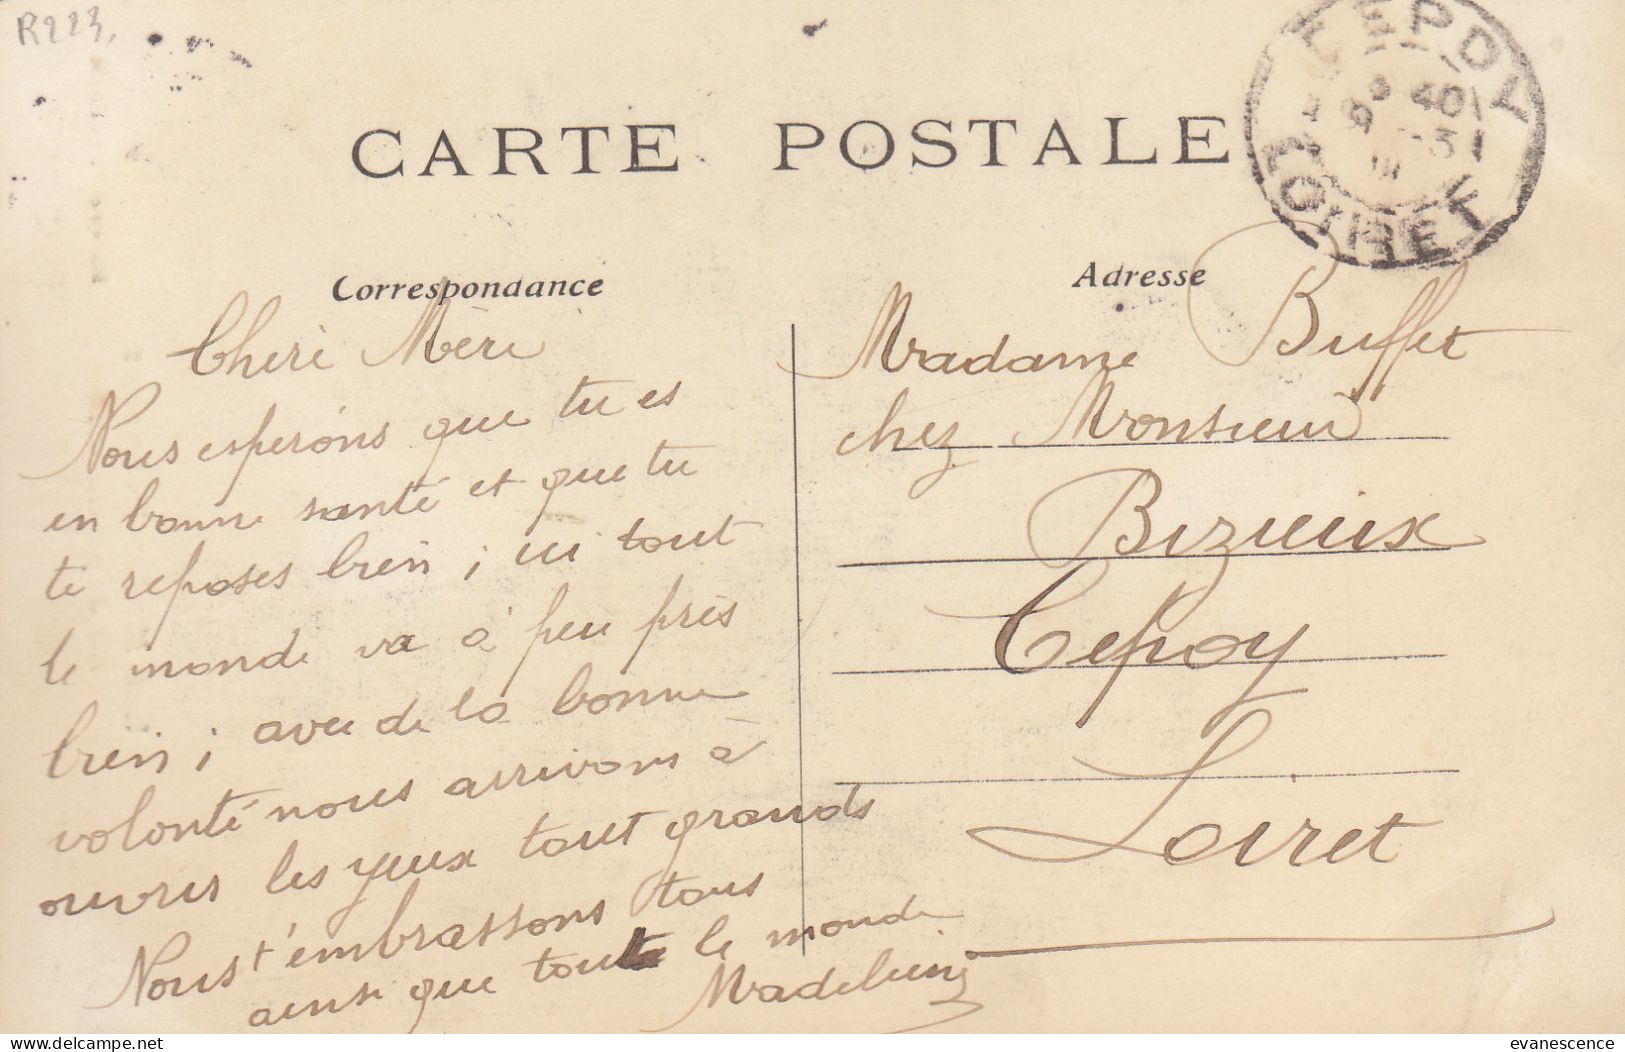 R223.
CEPOY
9 40
LOIRET
CARTE POSTALE
Correspondance
Adresse
Chère Mère
Nous esperons que tu es
en bonne santé et que tu
te reposes bien ; ici tout
le monde va à peu près
bien ; avec de la bonne
volonté nous arrivons à
ouvrir les yeux tout grands
Nous t'embrassons tous
ainsi que tout le monde
Madeleine
Madame Buffet
chez Monsieur
Bizieux
Cepoy
Loiret
evanescence